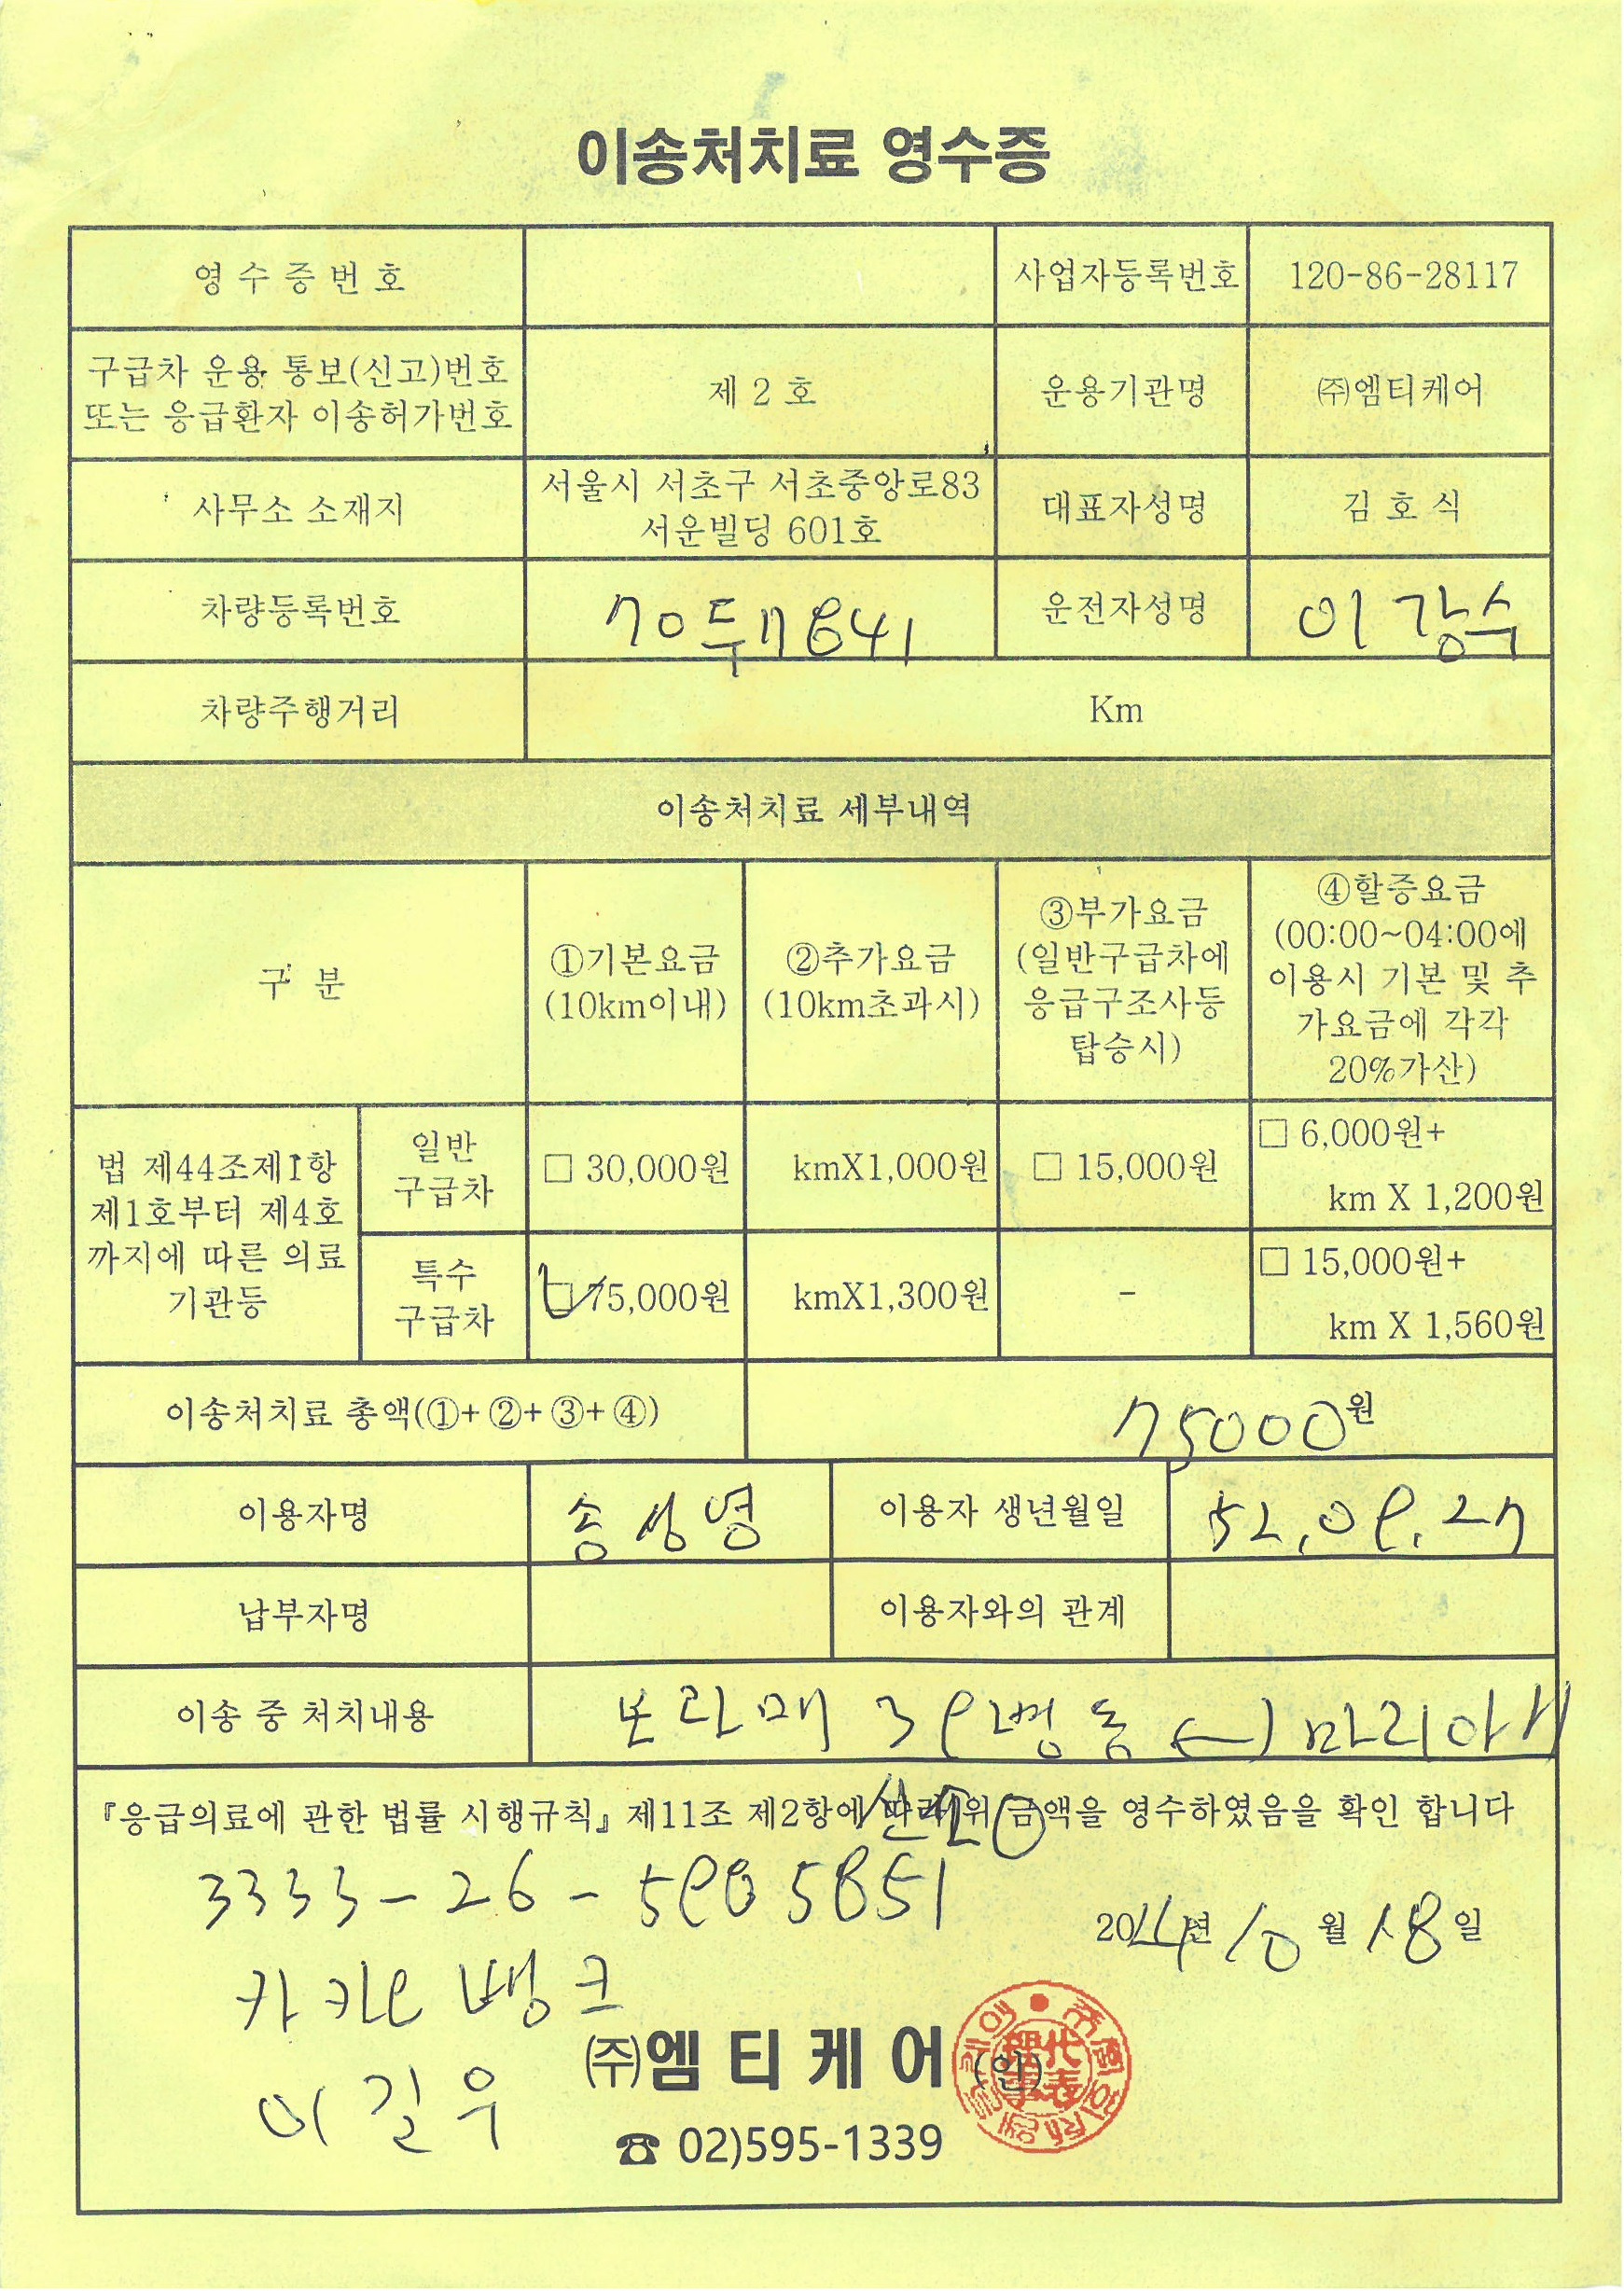 이송처치료 영수증
영 수 증 번 호
사업자등록번호 120-86-28117
구급차 운용 통보(신고)번호
또는 응급환자 이송허가번호
제 2 호
운용기관명 ㈜엠티케어
사무소 소재지
서울시 서초구 서초중앙로83
서운빌딩 601호
대표자성명 김 호 식
차량등록번호 70두7841
운전자성명 이강수
차량주행거리 Km
이송처치료 세부내역
구 분
①기본요금
(10km이내)
②추가요금
(10km초과시)
③부가요금
(일반구급차에
응급구조사등
탑승시)
④할증요금
(00:00~04:00에
이용시 기본 및 추
가요금에 각각
20%가산)
법 제44조제1항
제1호부터 제4호
까지에 따른 의료
기관등
일반
구급차
□ 30,000원
kmX1,000원
□ 15,000원
□ 6,000원+
km X 1,200원
특수
구급차
□ 75,000원
kmX1,300원
-
□ 15,000원+
km X 1,560원
이송처치료 총액(①+ ②+ ③+ ④)
75000원
이용자명 송성영
이용자 생년월일 52.09.27
납부자명
이용자와의 관계
이송 중 처치내용
보라매 39병동 마리아
『응급의료에 관한 법률 시행규칙』 제11조 제2항에 따라 위 금액을 영수하였음을 확인 합니다
3333-26-5985851
2024년 10월 18일
카카오 뱅크
이길우
㈜엠 티 케 어 (인)
☎ 02)595-1339